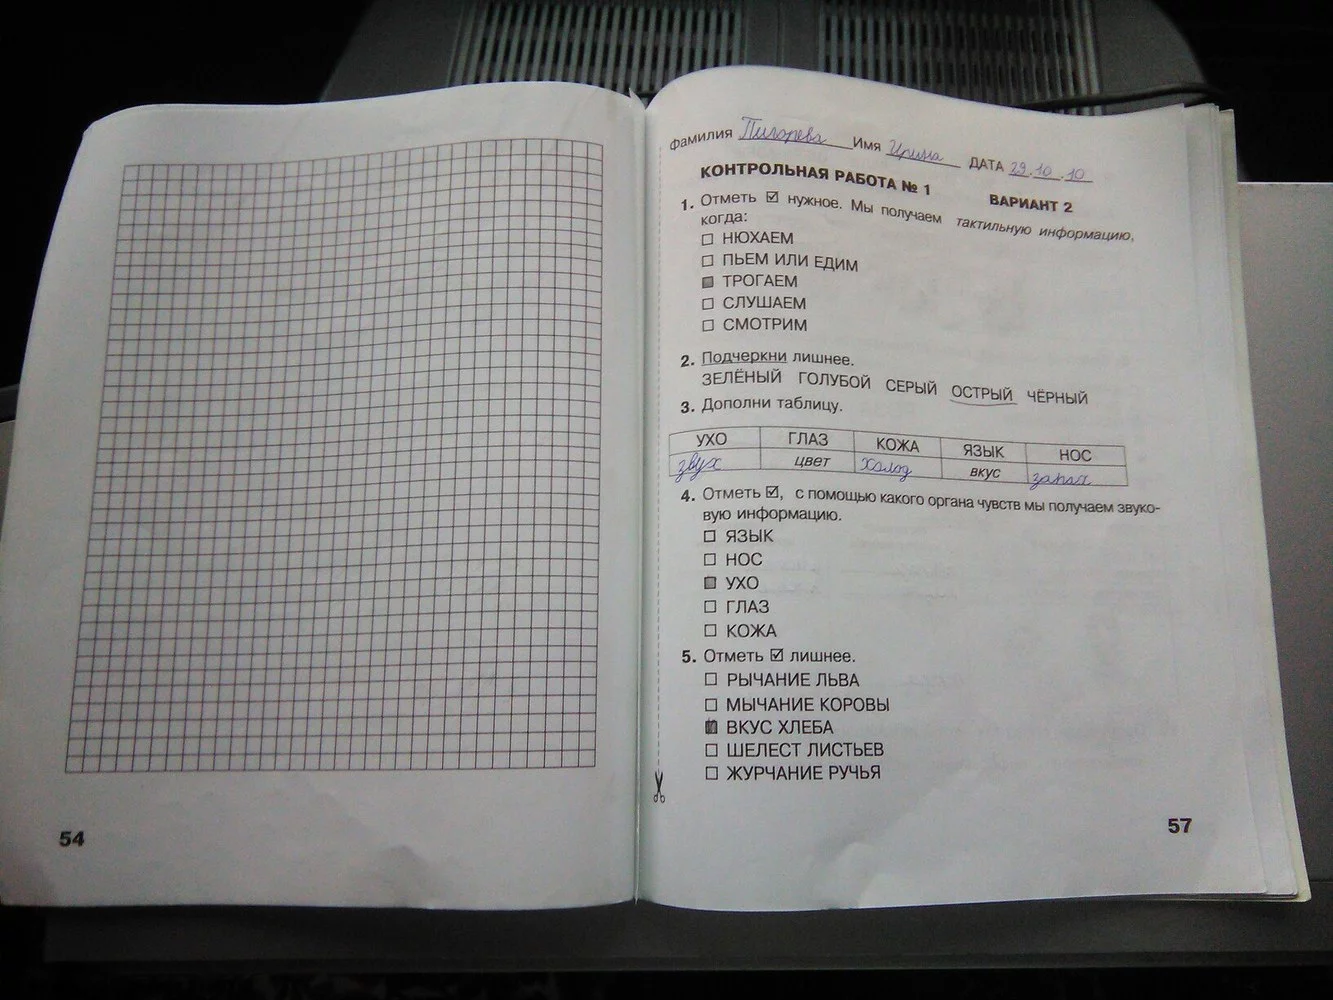 Фамилия Пигорева Имя Ирина ДАТА 29.10.10
КОНТРОЛЬНАЯ РАБОТА № 1 ВАРИАНТ 2
1. Отметь ☑ нужное. Мы получаем тактильную информацию,
когда:
☐ НЮХАЕМ
☐ ПЬЕМ ИЛИ ЕДИМ
■ ТРОГАЕМ
☐ СЛУШАЕМ
☐ СМОТРИМ
2. Подчеркни лишнее.
ЗЕЛЁНЫЙ ГОЛУБОЙ СЕРЫЙ ОСТРЫЙ ЧЁРНЫЙ
3. Дополни таблицу.
УХО ГЛАЗ КОЖА ЯЗЫК НОС
звух цвет холод вкус запах
4. Отметь ☑, с помощью какого органа чувств мы получаем звуко-
вую информацию.
☐ ЯЗЫК
☐ НОС
■ УХО
☐ ГЛАЗ
☐ КОЖА
5. Отметь ☑ лишнее.
☐ РЫЧАНИЕ ЛЬВА
☐ МЫЧАНИЕ КОРОВЫ
■ ВКУС ХЛЕБА
☐ ШЕЛЕСТ ЛИСТЬЕВ
☐ ЖУРЧАНИЕ РУЧЬЯ
54
57